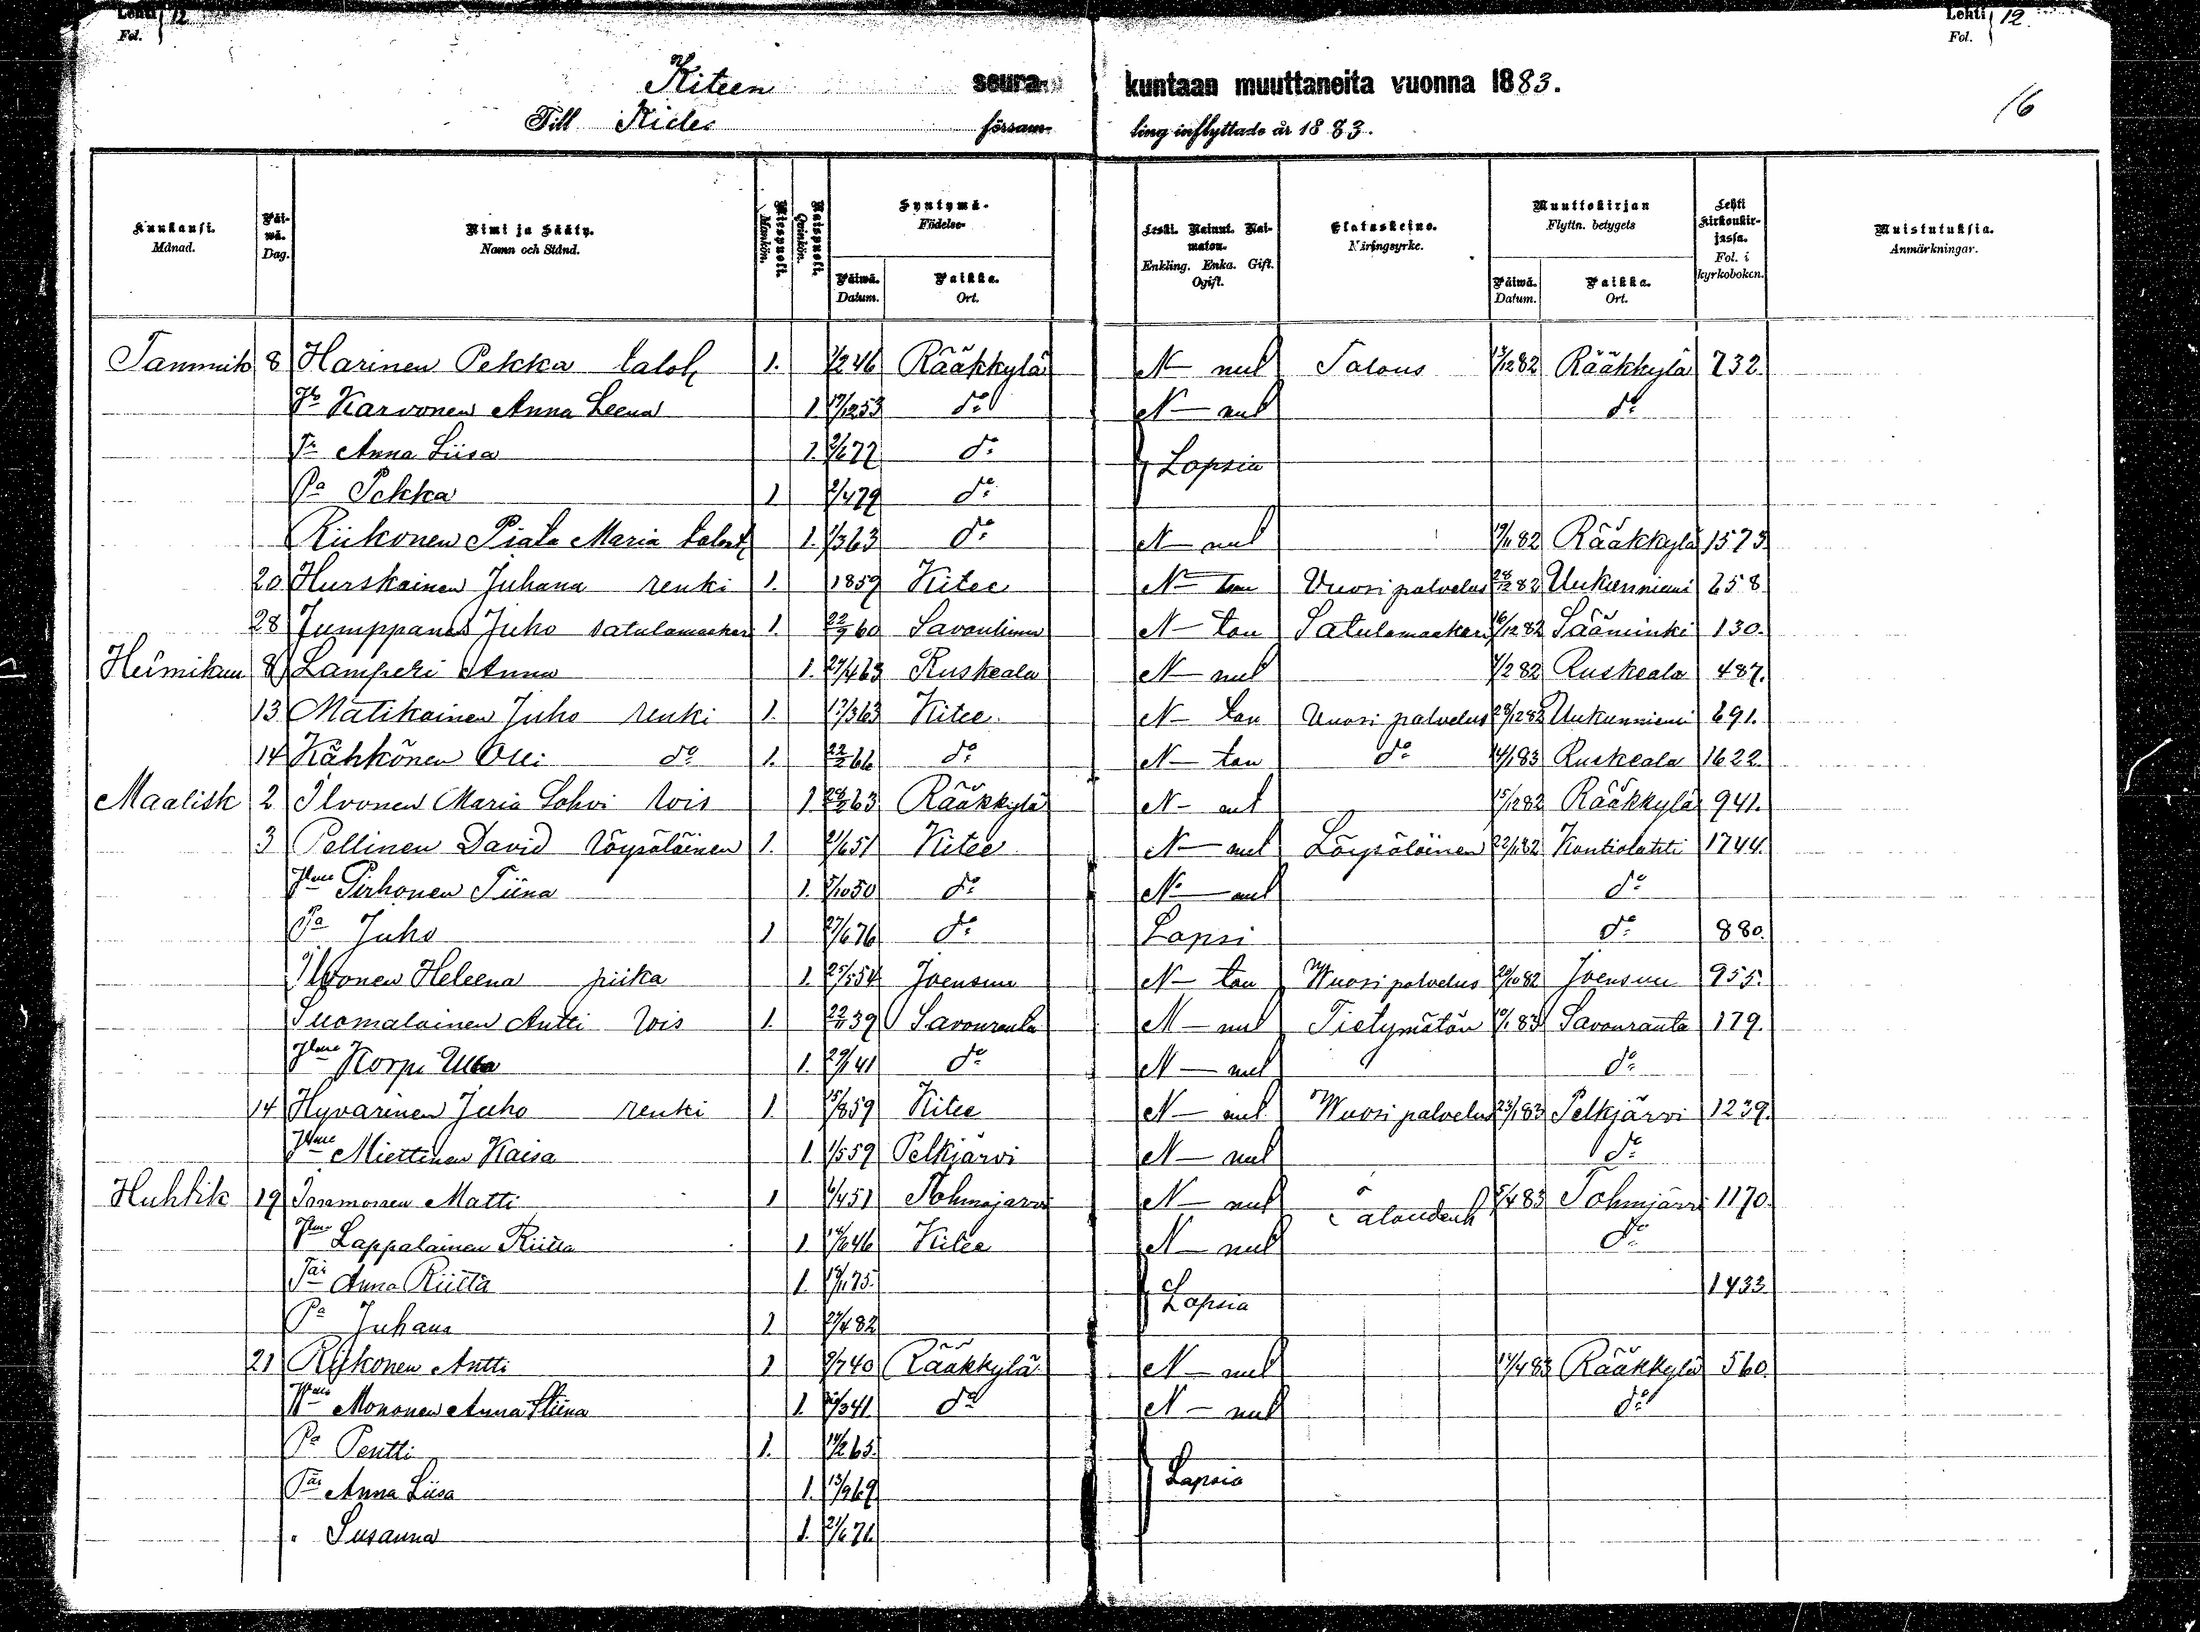 Lehti 12
Fol.
Lehti 12
Fol.
16
Kiteen seurakuntaan muuttaneita vuonna 1883.
Till Kides församling inflyttade år 1883.
Kuukausi. Månad.
Päiwä. Dag.
Nimi ja Sääty. Namn och Stånd.
Miespuoli. Mankön.
Naispuoli. Qvinkön.
Syntymä- Födelse-
Päiwä. Datum.
Paikka. Ort.
Leski. Nainut. Naimaton. Enkling. Enka. Gift. Ogift.
Elatuskeino. Näringsyrke.
Muuttokirjan Flyttn. betygets
Päiwä. Datum.
Paikka. Ort.
Lehti kirkonkirjassa. Fol. i kyrkoboken.
Muistutuksia. Anmärkningar.
Tammik 8 Harinen Pekka taloll 1. 1/2 46 Rääkkylä N- nut Talous 13/12 82 Rääkkylä 732.
Karvonen Anna Leena 1 17/12 53 do N- nut do
Tr Anna Liisa 1. 2/6 77 do Lapsia
Pa Pekka 1 2/4 79 do
Riikonen Maria 1. 1/3 63 do N- nut 19/11 82 Rääkkylä 1573
20 Hurskainen Juhana renki 1. 1859 Kitee N- ton Vuosi palvelus 28/12 82 Uukunniemi 658
28 Jumppanen Juho satulamaakari 1. 22/9 60 Savonlinna N- ton Satulamaakari 16/12 82 Sääminki 130.
Helmikuu 8 Lamperi Anna 1. 27/4 63 Ruskeala N- nut 7/2 82 Ruskeala 487.
13 Matikainen Juho renki 1. 17/3 63 Kitee N- ton Vuosi palvelus 28/12 82 Uukunniemi 691.
14 Kähkönen Olli do 1. 22/2 66 do N- ton do 14/1 83 Ruskeala 1622.
Maalisk 2 Ilvonen Maria Sohvi lois 1 63 Rääkkylä N- nut 15/12 82 Rääkkylä 941.
3 Pellinen David löysäläinen 1. 21/6 51 Kitee N- nut Löysäläinen 22/1 82 Kontiolahti 1744.
Pirhonen Tiina 1. 5/10 50 do N- nut do
Pa Juho 1 27/6 76 do Lapsi do 880.
Ilvonen Heleena piika 1. 25/5 54 Joensuu N- ton Wuosi palvelus 20/10 82 Joensuu 955.
Suomalainen Antti lois 1. 22/11 39 Savonranta N- nut Tietymätön 10/1 83 Savonranta 179.
Korpi Ulla 1. 29/1 41 do N- nut do
14 Hyvärinen Juho renki 1. 15/8 59 Kitee N- nut Wuosi palvelus 23/1 83 Pelkjärvi 1239.
Miettinen Kaisa 1 1/5 59 Pelkjärvi N- nut do
Huhtik 19 Matti 1 6/4 51 Tohmajärvi N- nut 5/4 83 Tohmjärvi 1170.
Lappalainen Riitta 1 46 Kitee N- nut do
Tär Anna Riitta 1. 75. Lapsia 1433.
Pa Juhana 1 27/4 82
21 Riikonen Antti 1 9/7 40 Rääkkylä N- nut 17/4 83 Rääkkylä 560.
Mononen Anna Stiina 1. 41. do N- nut do
Pa Pentti 1. 14/2 65. Lapsia
Tär Anna Liisa 1. 13/9 69
" Susanna 1. 21/6 71.